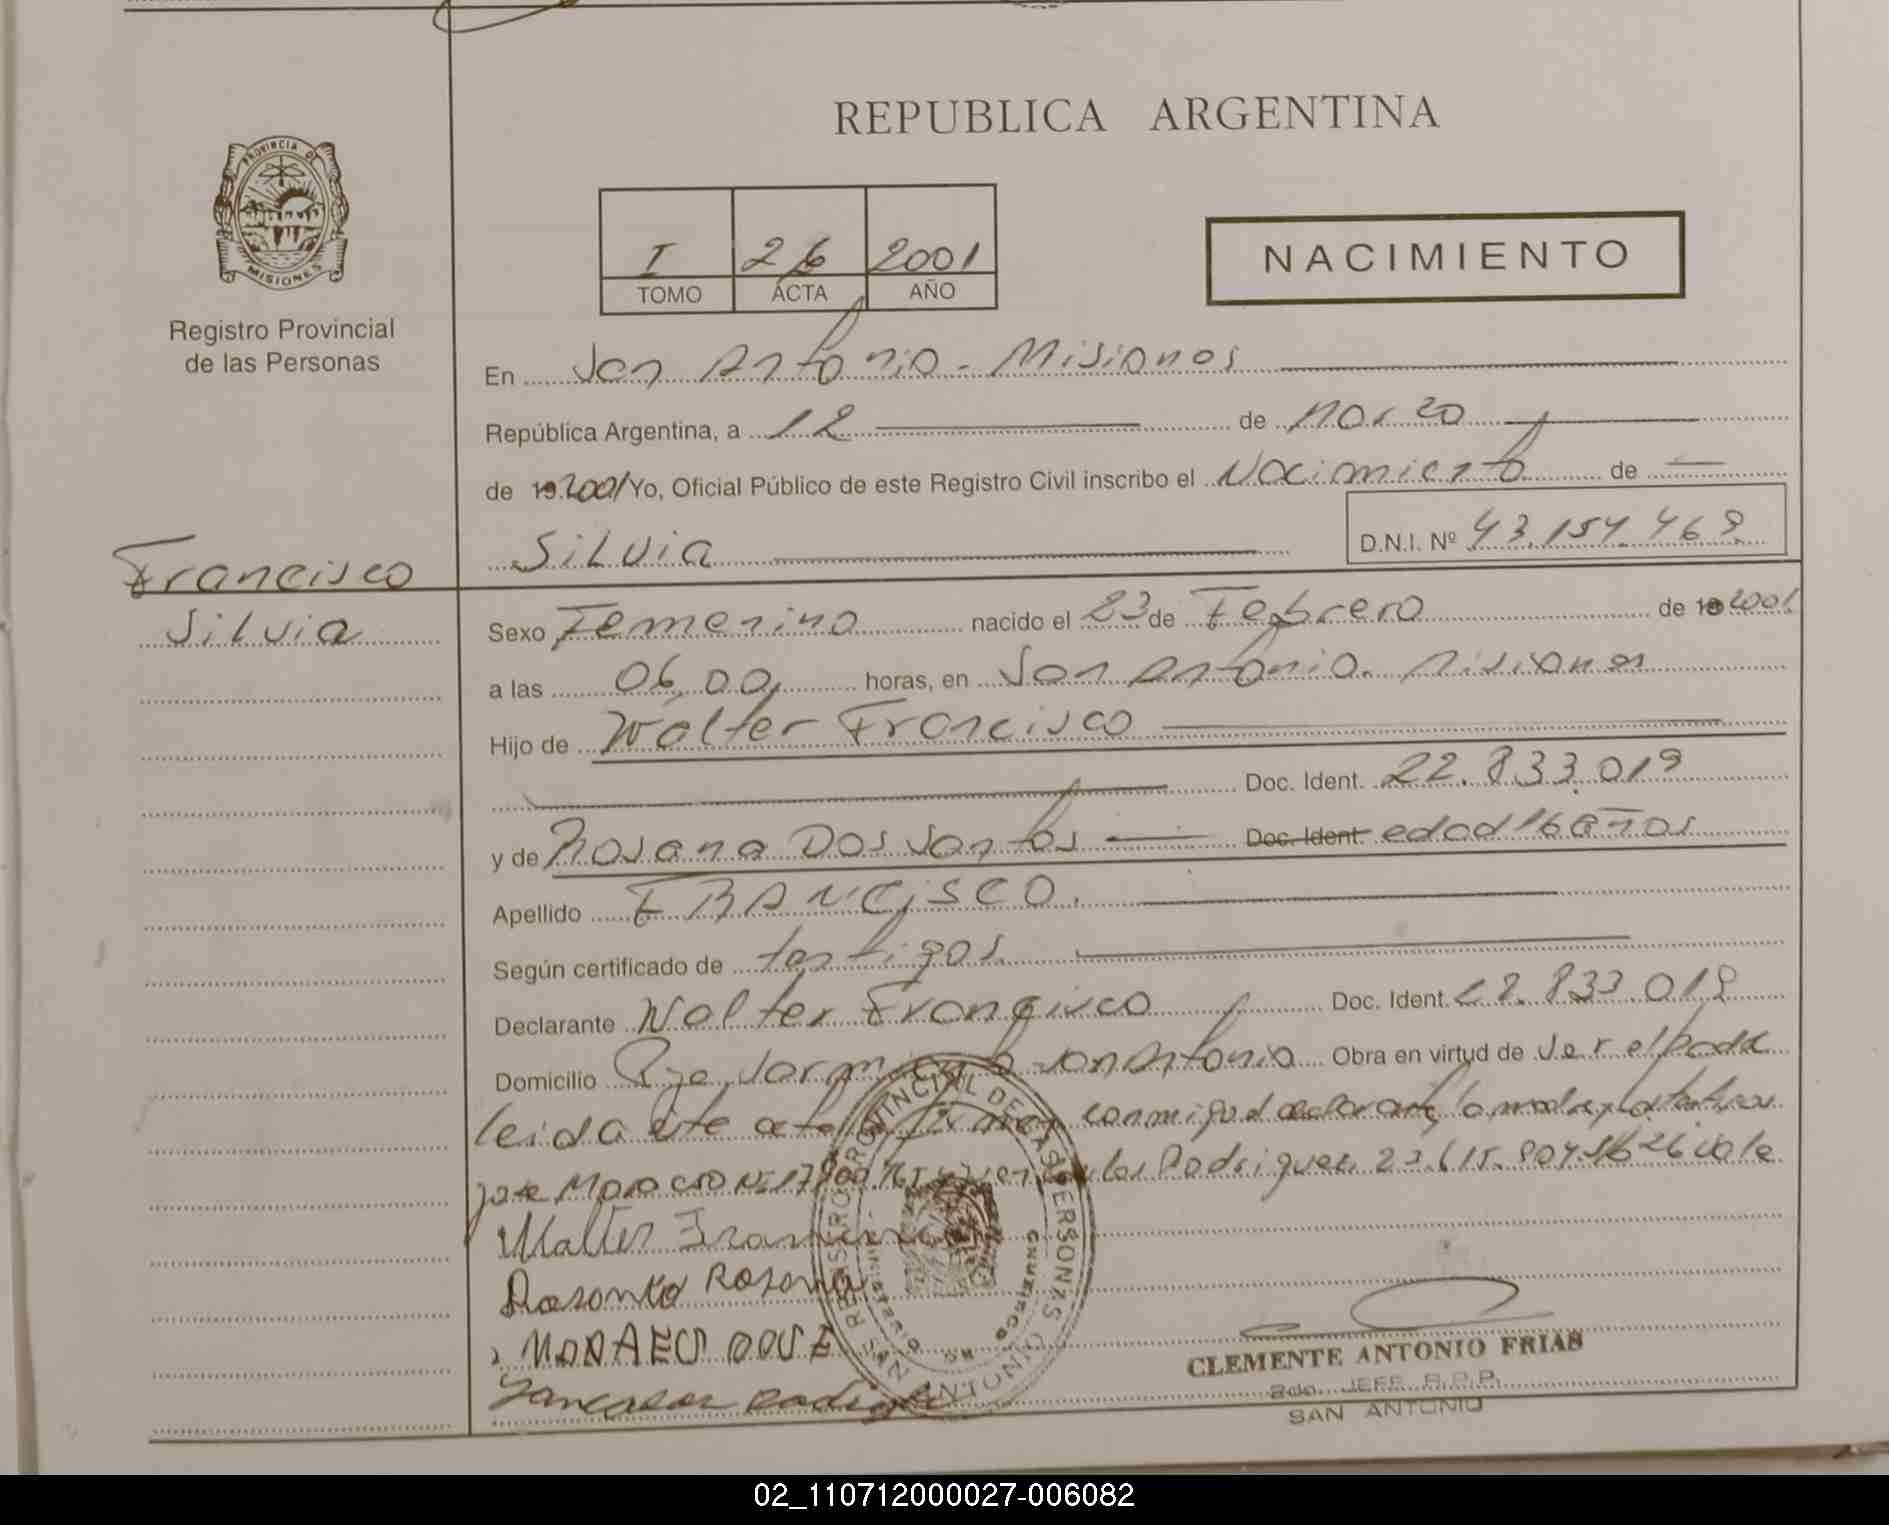 REPUBLICA ARGENTINA
PROVINCIA DE
MISIONES
Registro Provincial
de las Personas
I 26 2001
TOMO ACTA AÑO
NACIMIENTO
En San Antonio - Misiones
República Argentina, a 12 de Marzo
de 19 2001 Yo, Oficial Público de este Registro Civil inscribo el Nacimiento de
Silvia D.N.I. Nº 43.154.469
Francisco
Silvia
Sexo Femenino nacido el 23 de Febrero de 19 2001
a las 06,00 horas, en San Antonio. Misiones
Hijo de Walter Francisco
Doc. Ident. 22.833.019
y de Rosana Dos Santos Doc. Ident. edad 16 años
Apellido FRANCISCO.
Según certificado de testigos
Declarante Walter Francisco Doc. Ident. 22.833.019
Domicilio Pje. Sarmiento San Antonio Obra en virtud de ser el padre
leida este acta firman conmigo el declarante, la madre y testigos
Rodriguez
Walter
Rosana
CLEMENTE ANTONIO FRIAS
2do. JEFE R.P.P.
SAN ANTONIO
REGISTRO PROVINCIAL DE LAS PERSONAS
SAN ANTONIO
02_110712000027-006082